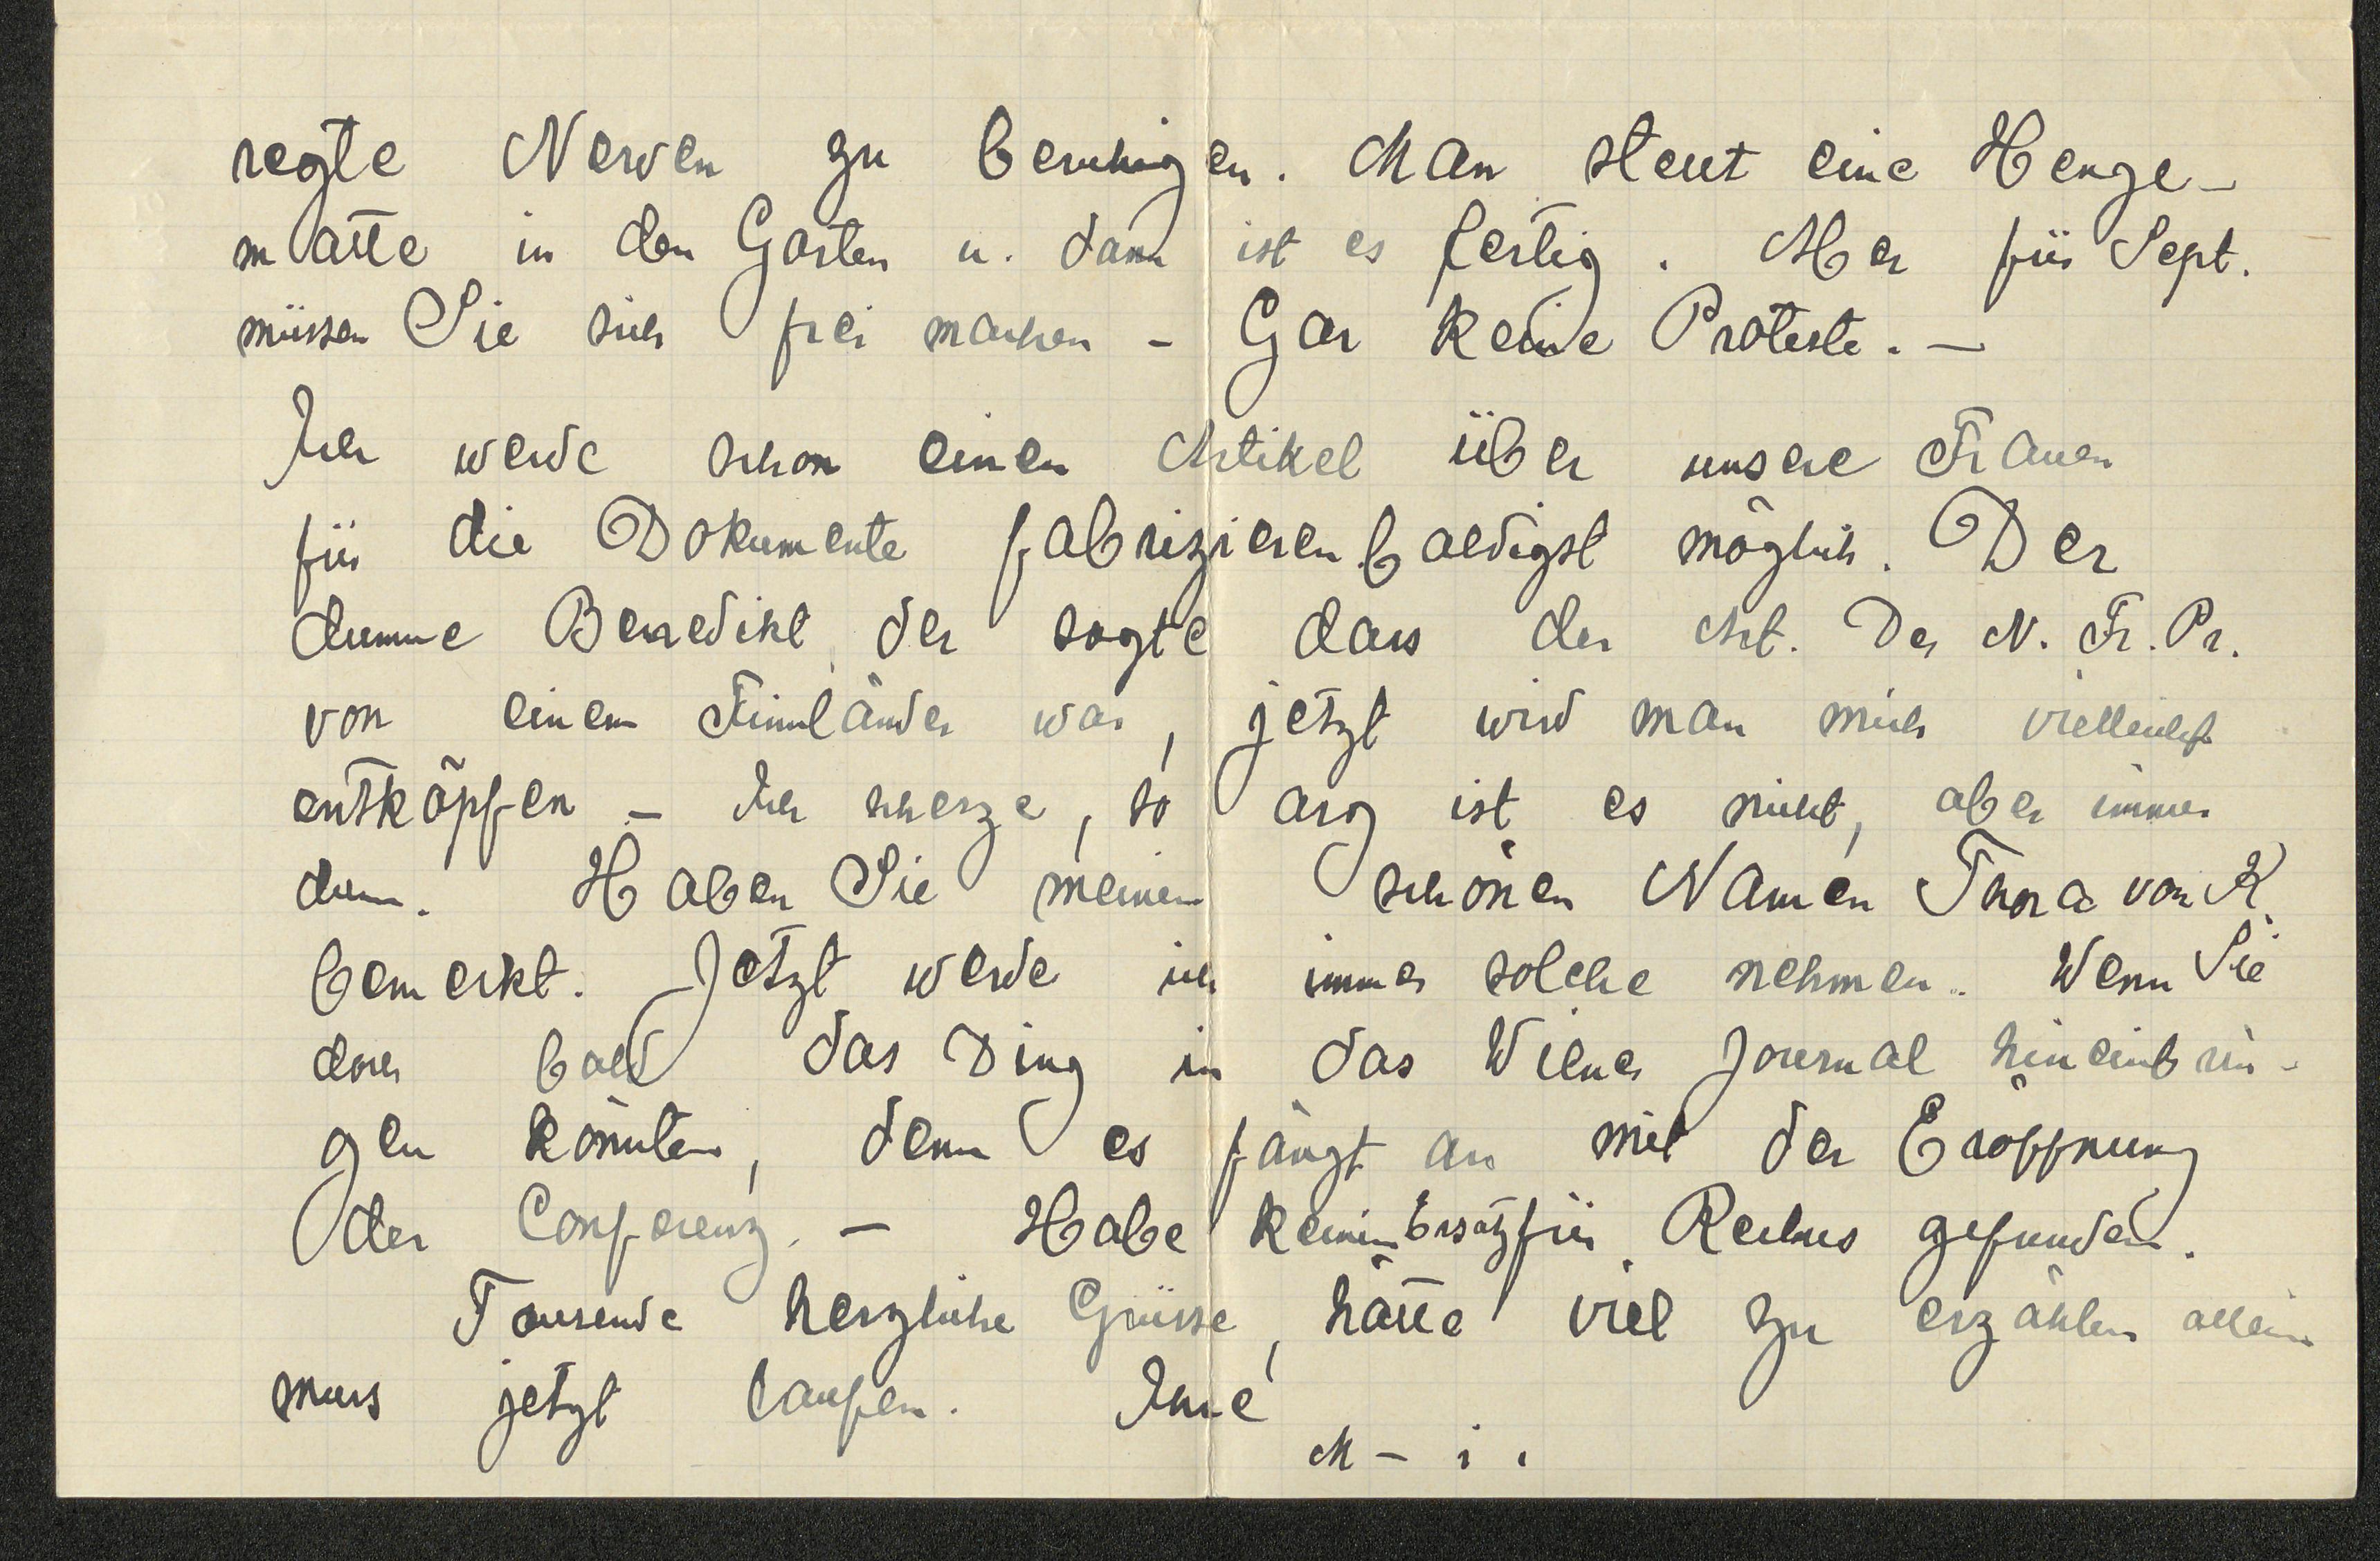 regte Nerven zu beruhigen. Man stellt eine Henge-
matte in den Garten u. dann ist es fertig. Aber für Sept.
müssen Sie sich frei machen - Gar keine Proteste. —
Ich werde schon einen Artikel über unsere Frauen
für die Dokumente fabrizieren baldigst möglich. Der
dumme Benedikt, der sagte dass der Art. Der N. Fr. Pr.
von einem Finnländer war, jetzt wird man mich vielleicht
entköpfen - Ich scherze, so arg ist es nicht, aber immer
dum. Haben Sie meinen schönen Namen Thora von K.
bemerkt. Jetzt werde ich immer solche nehmen. Wenn Sie
doch bald das Ding in das Wiener Journal hineinbrin-
gen könnten, denn es fängt an mit der Eröffnung
der Conferenz. — Habe keinen Ersatz für gefunden.
Tausende herzliche Grüsse, hätte viel zu erzählen allein
muss jetzt laufen. Ihre
M - i.